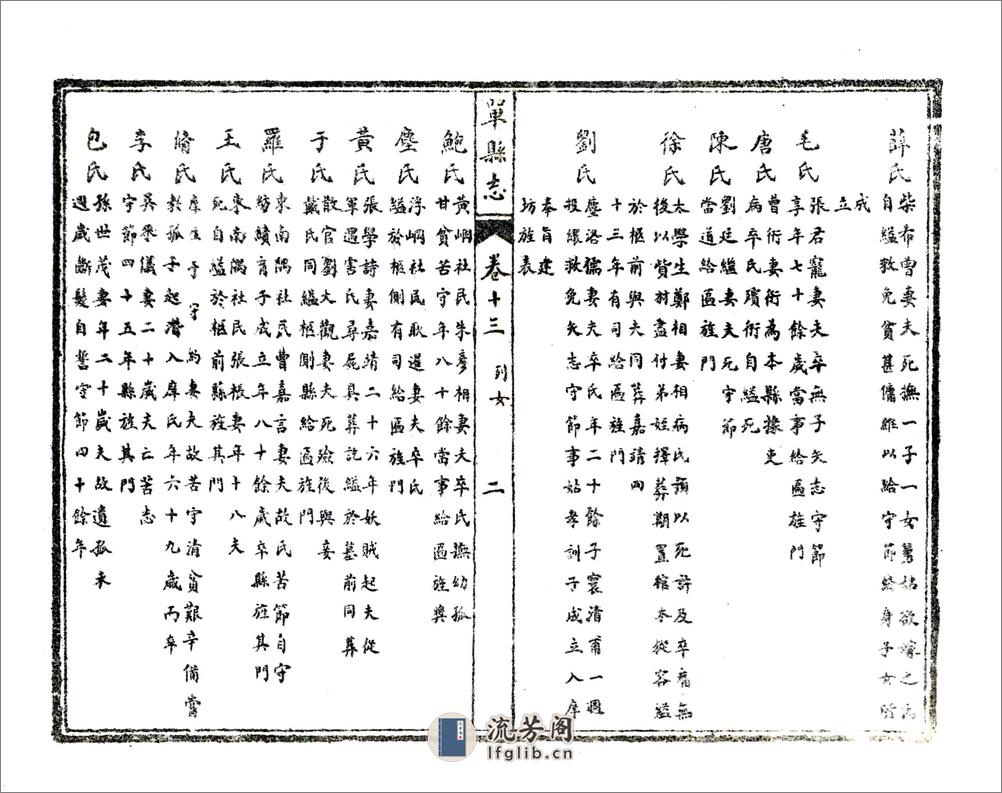 薛氏
柴布曹妻夫死撫一子一女舅姑欲嫁之
自縊救免貧甚傭雖以給守節終身子女
成
立
毛氏
張君寵妻夫卒無子矢志守節
享年七十餘歲當事給匾旌門
唐氏
曹術妻術為本縣掾吏
病卒殯術自縊死
陳氏
劉廷繼妻夫死守節
當道給匾旌門
徐氏
太學生鄭相妻相病氏預以死許及卒痛無
後以貲財盡付弟姪擇葬期置棺本從容縊
於柩前與夫同葬嘉靖四
十三年有司給匾旌門
劉氏
塵洛儒妻夫卒氏年二十餘子寰清甫一週
投繯救免矢志守節事姑孝訓子成立入庠
奉旨建
坊旌表
單縣志
卷十三
列女
二
鮑氏
黃岡社民朱彥相妻夫卒氏撫幼孤
甘貧苦守年八十餘當事給匾旌獎
塵氏
浮岡社民耿暹妻夫卒氏
縊於柩側有司給匾旌門
黃氏
張學詩妻嘉靖二十六年妖賊起夫從
軍遇害氏尋屍具葬訖縊於墓前同葬
于氏
散官劉大觀妻夫死殮後與妾
戴氏同縊柩側縣給匾旌門
羅氏
東南隅社民曹嘉言妻夫故氏苦節自守
紡績育子成立年八十餘歲卒縣旌其門
王氏
東南隅社民張根妻年十八夫
死自縊於柩前縣旌其門
脩氏
庠生于守約妻夫故苦守清貧艱辛備嘗
教孤子起潛入庠氏年六十九歲而卒
李氏
吳秉儀妻二十歲夫亡苦志
守節四十五年縣旌其門
包氏
孫世茂妻年二十歲夫故遺孤未
週歲斷髮自誓守節四十餘年
流芳閣
lfglib.cn